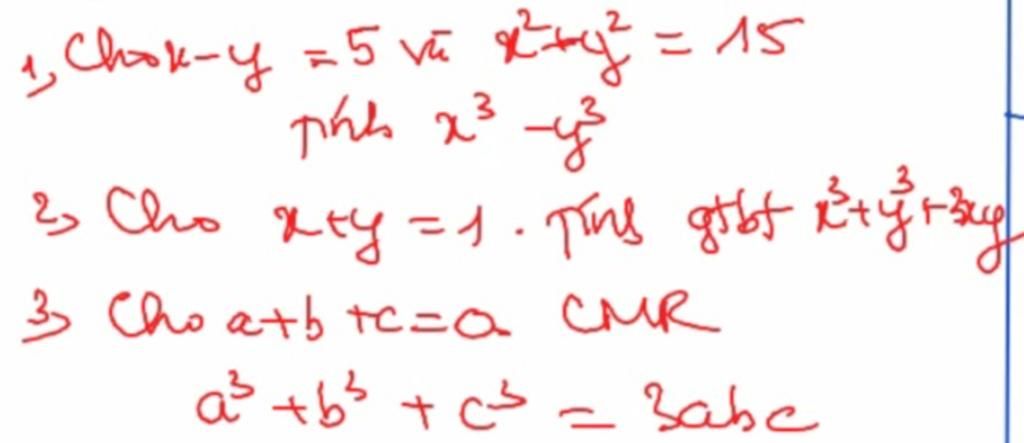 1, Cho x-y = 5 và x²+y² = 15
Tính x³ - y³
2, Cho x+y = 1. Tính gtbt x³+y³+3xy
3, Cho a+b+c=0 CMR
a³ + b³ + c³ = 3abc